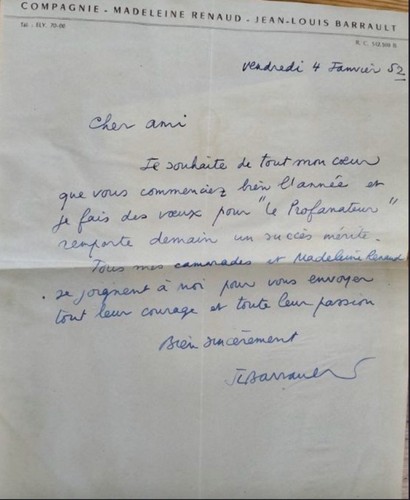 COMPAGNIE - MADELEINE RENAUD - JEAN-LOUIS BARRAULT
Tél. : ELY. 70-
R. C.
vendredi 4 Janvier 52
Cher ami
Je souhaite de tout mon cœur
que vous commenciez bien l'année et
je fais des vœux pour "Le Profanateur"
remporte demain un succès mérité.
Tous mes camarades et Madeleine Renaud
se joignent à moi pour vous envoyer
tout leur courage et toute leur passion
Bien sincèrement
JLBarrault